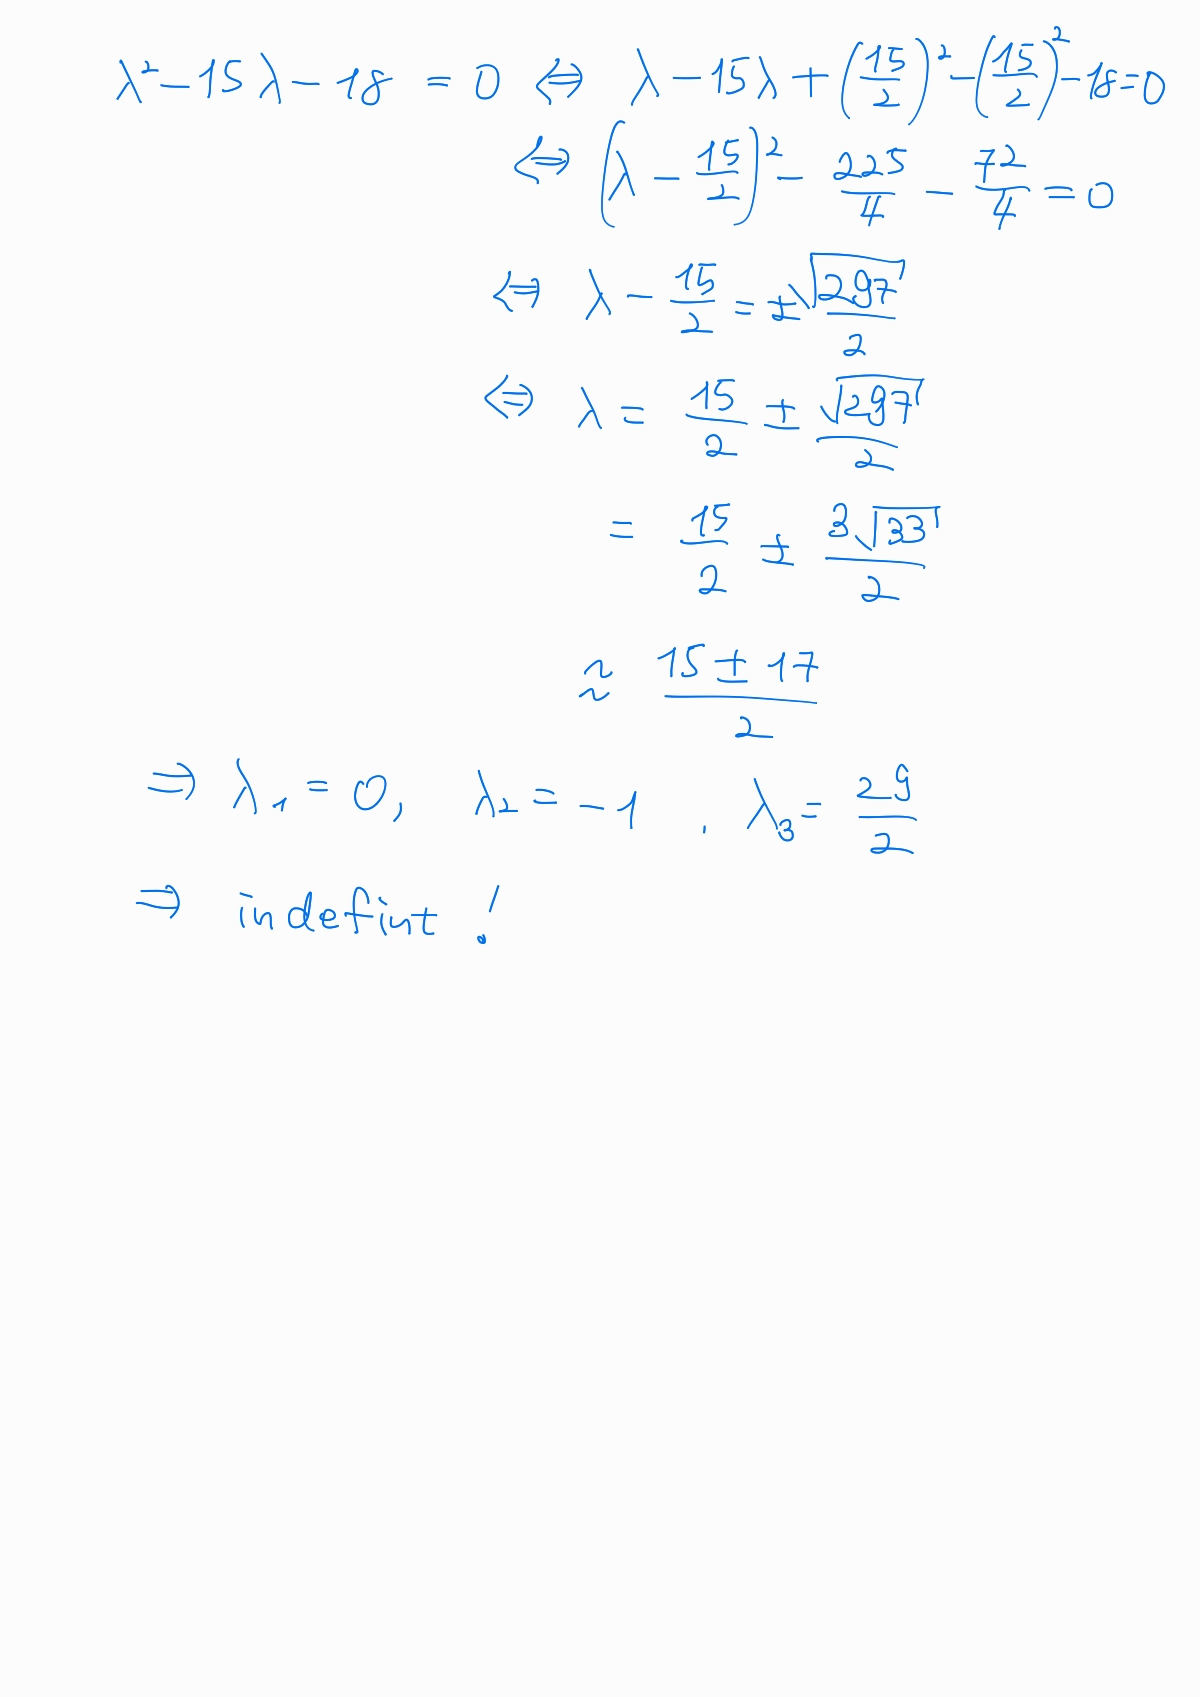 λ² − 15λ − 18 = 0 ⇔ λ − 15λ + (15/2)² − (15/2)² − 18 = 0
⇔ (λ − 15/2)² − 225/4 − 72/4 = 0
⇔ λ − 15/2 = ± √297/2
⇔ λ = 15/2 ± √297/2
= 15/2 ± 3√33/2
≈ (15 ± 17)/2
⇒ λ₁ = 0, λ₂ = −1 , λ₃ = 29/2
⇒ indefint !